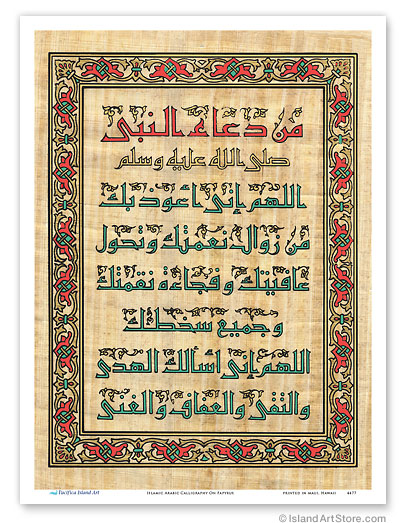 من دعاء النبي
صلى الله عليه وسلم
اللهم إني أعوذ بك
من زوال نعمتك وتحول
عافيتك و فجاءة نقمتك
و جميع سخطك
اللهم إني أسألك الهدى
والتقى والعفاف والغنى
Pacifica Island Art
Islamic Arabic Calligraphy On Papyrus
Printed in Maui, Hawaii
4477
© IslandArtStore.com